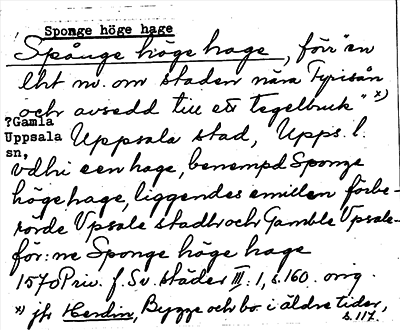 Sponge höge hage
Spånge höge hage, förr en
lht nv. om staden nära Fyrisån
och avsedd till ett tegelbruk" x)
?Gamla
Uppsala
sn,
Uppsala stad, Upps. l.
vdhi een hage, benempd Sponge
högehage, liggendes emillen förbe-
rorde Vpsale stadh och Gamble Vpsale-
för:ne Sponge höge hage
1570 Priv. f. Sv. städer III: 1, s. 160. orig.
x) jfr Herdin, Bygge och bo i äldre tider,
s. 117.